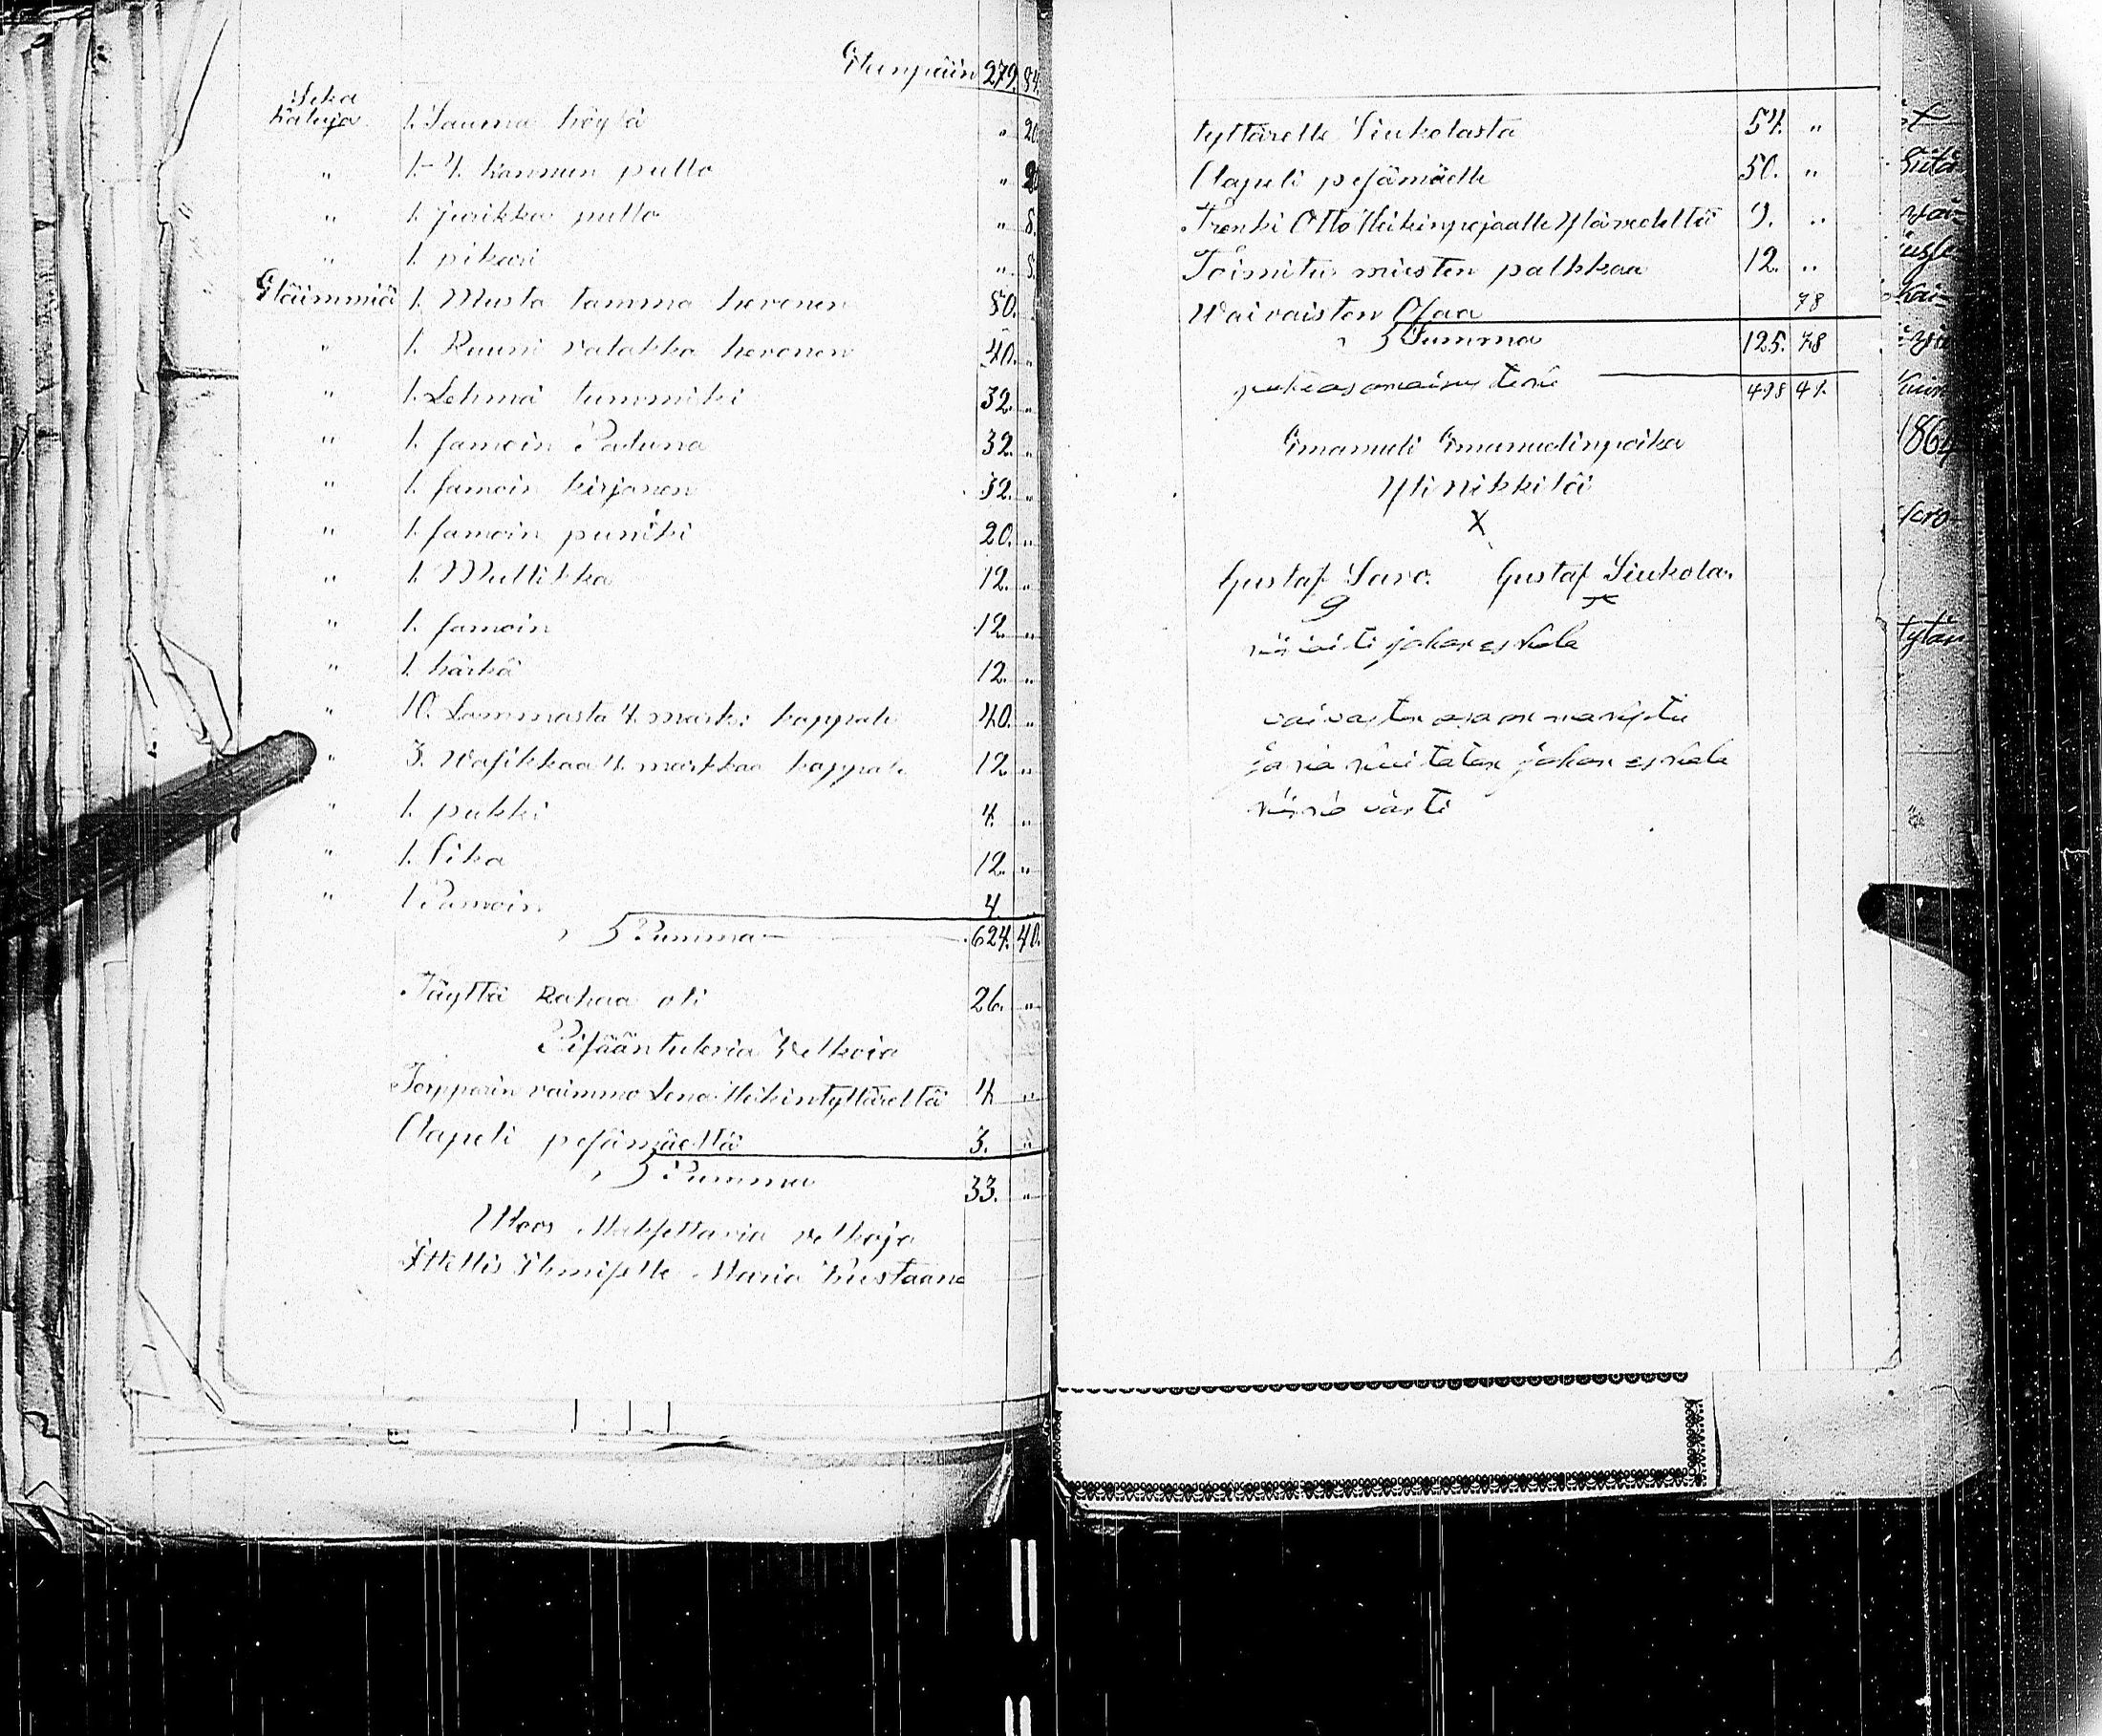 Eteenpäin 279. 84.
Seka
kaluja 1. Sauma höylä " 20.
" 1- 4. kannun putto "
" 1. jurikka putto " 8.
" 1. pikari " 8.
Eläimmiä 1. Musta tamma hevonen 80.
" 1. Ruuni valakka hevonen 40. "
" 1. Lehmä tummiki 32. "
" 1. samoin Paduna 32. "
" 1. samoin kirjonen 32. "
" 1. samoin puniki 20. "
" 1. Mullikka 12. "
" 1. samoin 12. "
" 1. härkä 12. "
" 10. Lammasta 4. marki kappale 40. "
" 3. Wasikkaa 4. markkaa kappale 12. "
" 1. pukki 4. "
" 1. Sika 12. "
" 1 Samoin 4.
Summa 624. 40.
Täyttä Rahaa oli 26. "
Sisääntulevia Velkoia
Torpparin vaimmo Lena Heikintyttäreltä 4 "
Clapeli pesämäeltä 3. "
Summa 33. "
Ulos Maksettavia velkoja
Ittellis Ihmiselle Maria Kustaan
tyttärelle Siukolasta 54. "
Clapeli pesämäelle 50. "
Trenki Otto Heikinpojaalle Ylävedeltä 9. "
Toimitus miesten palkkaa 12. "
Waivaisten Osaa 78
Summa 125. 78
498 41.
Emanueli Emanuelinpoika
Yli Nikkilä
X
Gustaf Savo. Gustaf Siukola.
johan eskola
vaivasten osa on maxettu
johan eskola
1864